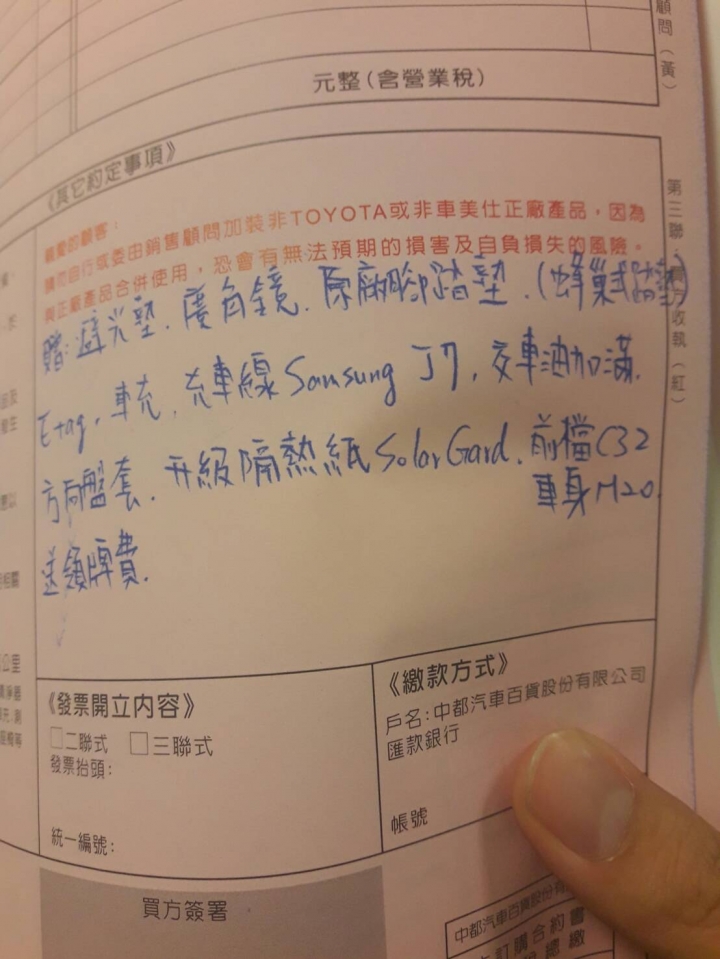 顧問（黃）
元整(含營業稅)
《其它約定事項》
親愛的顧客：
請勿自行或委由銷售顧問加裝非TOYOTA或非車美仕正廠產品，因為
與正廠產品合併使用，恐會有無法預期的損害及自負損失的風險。
贈:避光墊.廣角鏡.原廠腳踏墊.(蜂巢式踏墊)
Etag,車充,充車線Samsung J7,交車油加滿.
方向盤套.升級隔熱紙SolarGard.前檔C32
車身M20.
送領牌費.
第三聯：買方收執（紅）
《發票開立內容》
□二聯式 □三聯式
發票抬頭：
統一編號：
《繳款方式》
戶名：中都汽車百貨股份有限公司
匯款銀行
帳號
買方簽署
中都汽車百貨股份有
訂購合約書
總繳